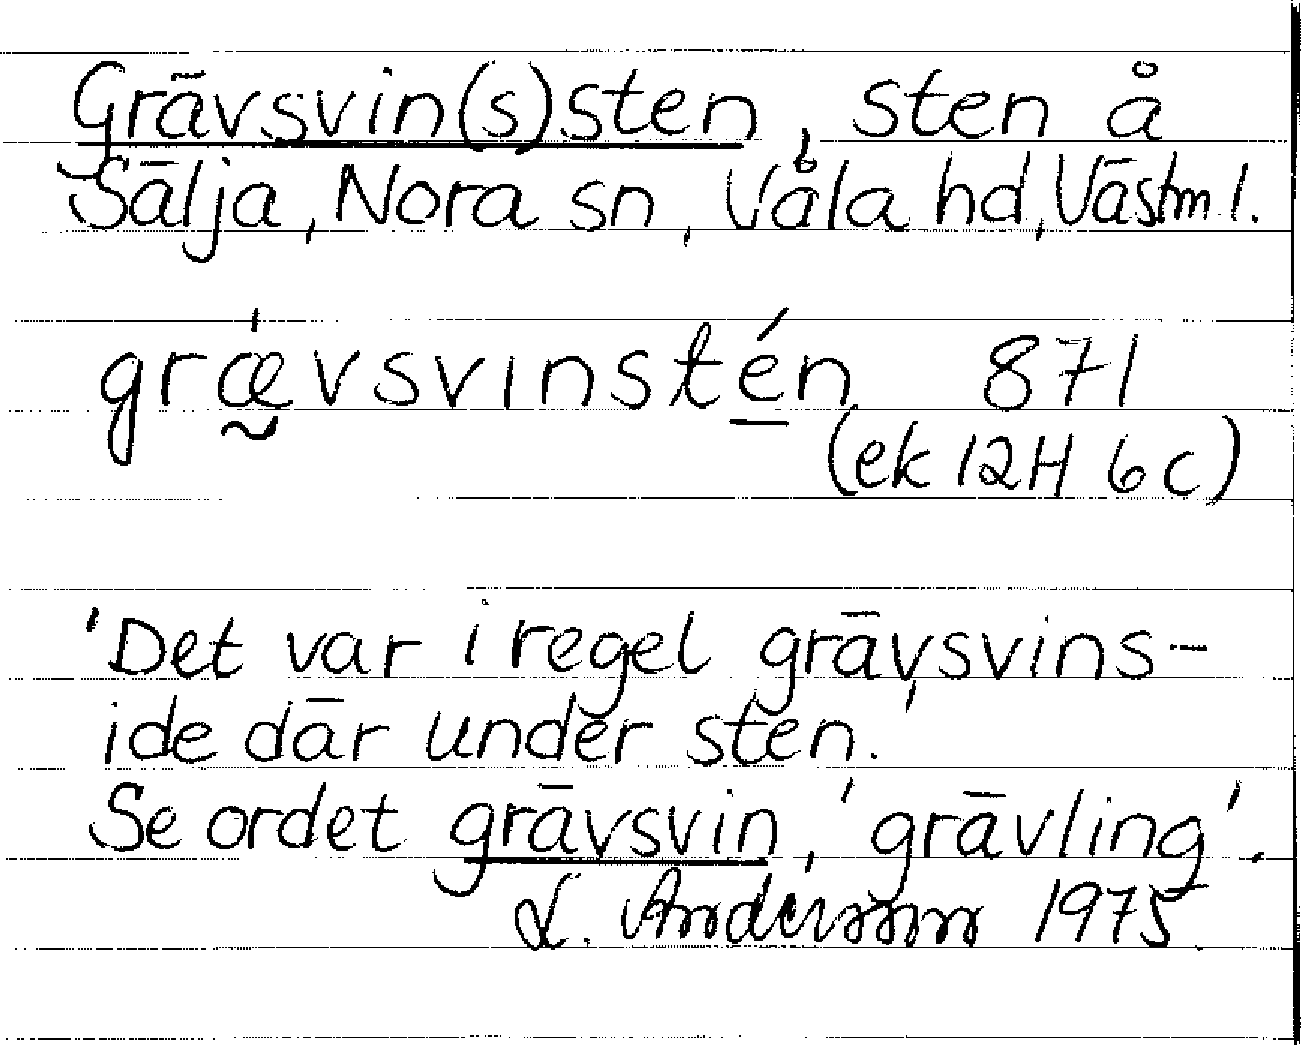 Grävsvin(s)sten, sten å
Sälja, Nora sn, Våla hd, Västml.
grǽvsvinstén 871
(ek 12H 6c)
'Det var i regel grävsvins-
ide där under sten.'
Se ordet grävsvin, 'grävling'.
L. Andersson 1975